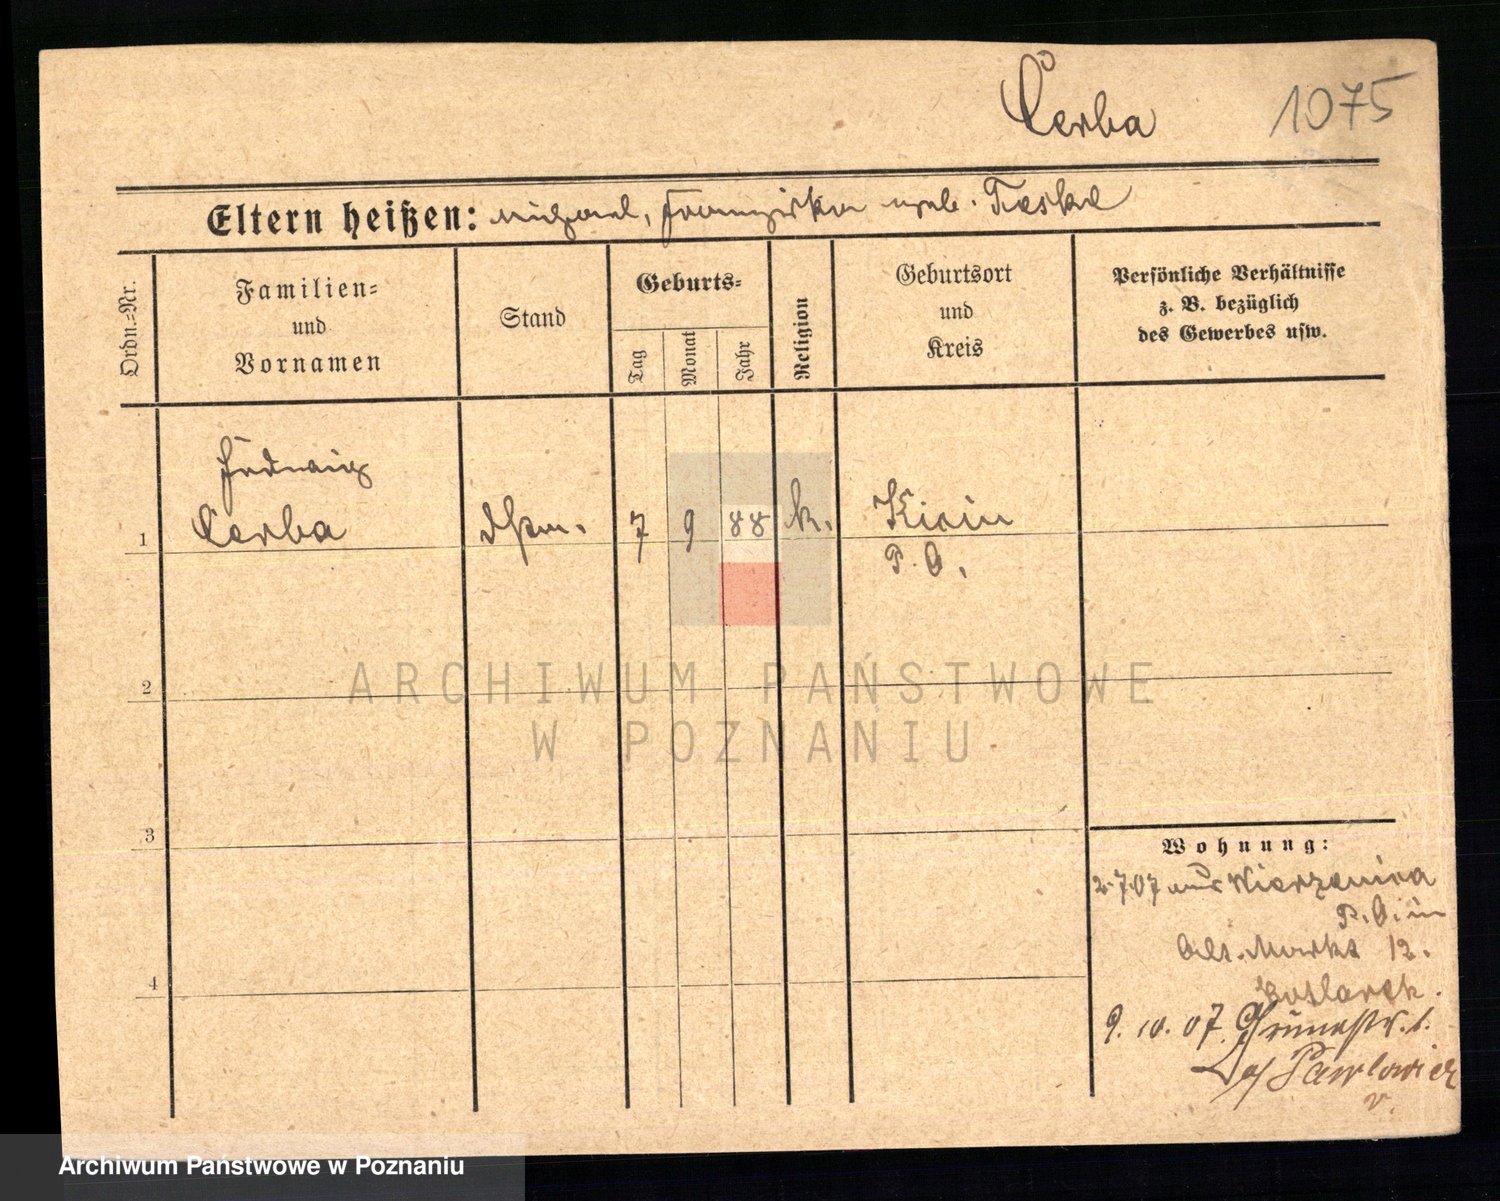 Cerba
1075
Eltern heißen: Michael, Franziska geb. Teska
Ordn.-Nr.
Familien-
und
Vornamen
Stand
Geburts-
Tag
Monat
Jahr
Religion
Geburtsort
und
Kreis
Persönliche Verhältnisse
z. B. bezüglich
des Gewerbes usw.
Hedwig
1 Cerba
7 9 88 k. Kicin
P. O.
2
ARCHIWUM PAŃSTWOWE
W POZNANIU
3
Wohnung:
2.7.07 aus Wierzenica
P. O. in
Alt. Markt 12.
4
9. 10. 07. Grünestr. 1.
Pawlowicz
Archiwum Państwowe w Poznaniu